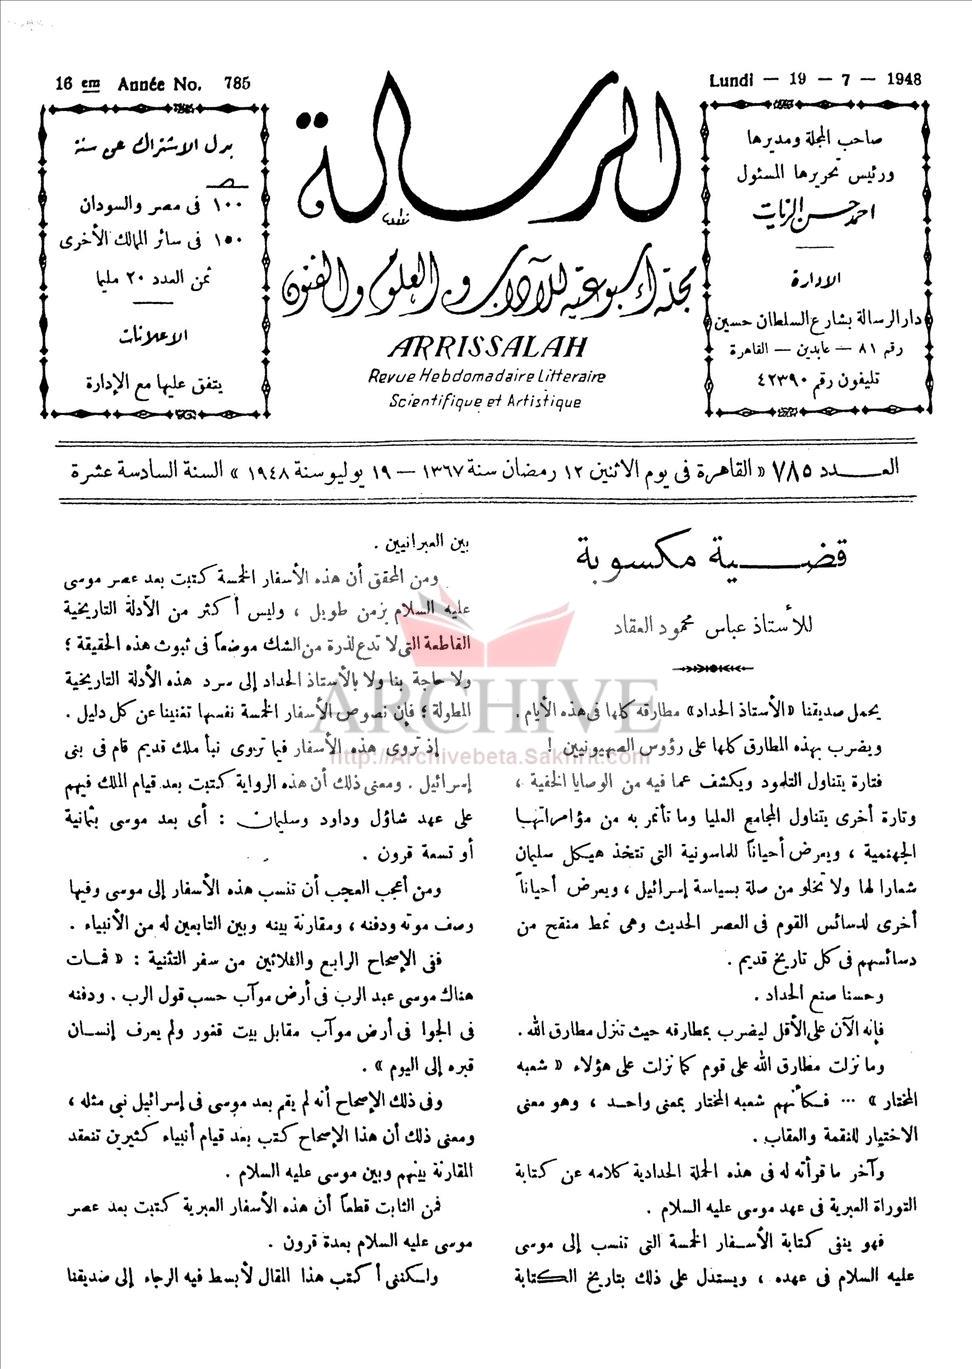 16 em Année No. 785
Lundi — 19 — 7 — 1948
صاحب المجلة ومديرها
ورئيس تحريرها المسئول
احمد حسن الزيات
الادارة
دار الرسالة بشارع السلطان حسين
رقم ٨١ — عابدين — القاهرة
تليفون رقم ٤٢٣٩٠
الرسالة
مجلة أسبوعية للآداب والعلوم والفنون
ARRISSALAH
Revue Hebdomadaire Litteraire
Scientifique et Artistique
بدل الاشتراك عن سنة
١٠٠ فى مصر والسودان
١٥٠ فى سائر الممالك الأخرى
ثمن العدد ٢٠ مليما
الاعلانات
يتفق عليها مع الإدارة
العـــدد ٧٨٥ « القاهرة فى يوم الاثنين ١٢ رمضان سنة ١٣٦٧ — ١٩ يوليو سنة ١٩٤٨ » السنة السادسة عشرة
قضـــية مكسوبة
للأستاذ عباس محمود العقاد
يحمل صديقنا «الأستاذ الحداد» مطارقه كلها فى هذه الأيام .
ويضرب بهذه المطارق كلها على رؤوس الصهيونيين !
فتارة يتناول التلمود ويكشف عما فيه من الوصايا الخفية ،
وتارة أخرى يتناول المجامع العليا وما تأتمر به من مؤامراتها
الجهنمية ، ويعرض أحياناً للماسونية التى تتخذ هيكل سليمان
شعارا لها ولا تخلو من صلة بسياسة إسرائيل ، ويعرض أحياناً
أخرى لدسائس القوم فى العصر الحديث وهى نمط منقح من
دسائسهم فى كل تاريخ قديم .
وحسنا صنع الحداد .
فإنه الآن على الأقل ليضرب بمطارقه حيث تنزل مطارق الله .
وما نزلت مطارق الله على قوم كما نزلت على هؤلاء « شعبه
المختار » ... فكأنهم شعبه المختار بمعنى واحد ، وهو معنى
الاختيار للنقمة والعقاب .
وآخر ما قرأته له فى هذه الحملة الحدادية كلامه عن كتابة
التوراة العبرية فى عهد موسى عليه السلام .
فهو ينفى كتابة الأسفار الخمسة التى تنسب إلى موسى
عليه السلام فى عهده ، ويستدل على ذلك بتاريخ الكتابة
بين العبرانيين .
ومن المحقق أن هذه الأسفار الخمسة كتبت بعد عصر موسى
عليه السلام بزمن طويل ، وليس أكثر من الأدلة التاريخية
القاطعة التى لا تدع لذرة من الشك موضعاً فى ثبوت هذه الحقيقة ؛
ولا حاجة بنا ولا بالأستاذ الحداد إلى سرد هذه الأدلة التاريخية
المطولة ؛ فإن نصوص الأسفار الخمسة نفسها تغنينا عن كل دليل .
إذ تروى هذه الأسفار فيما تروى نبأ ملك قديم قام فى بنى
إسرائيل . ومعنى ذلك أن هذه الرواية كتبت بعد قيام الملك فيهم
على عهد شاؤل وداود وسليمان : أى بعد موسى بثمانية
أو تسعة قرون .
ومن أعجب العجب أن تنسب هذه الأسفار إلى موسى وفيها
وصف موته ودفنه ، ومقارنة بينه وبين التابعين له من الأنبياء .
ففى الإصحاح الرابع والثلاثين من سفر التثنية : « فمات
هناك موسى عبد الرب فى أرض موآب حسب قول الرب . ودفنه
فى الجوا فى أرض موآب مقابل بيت فغور ولم يعرف إنسان
قبره إلى اليوم » .
وفى ذلك الإصحاح أنه لم يقم بعد موسى فى إسرائيل نبى مثله ،
ومعنى ذلك أن هذا الإصحاح كتب بعد قيام أنبياء كثيرين تنعقد
المقارنة بينهم وبين موسى عليه السلام .
فمن الثابت قطعاً أن هذه الأسفار العبرية كتبت بعد عصر
موسى عليه السلام بعدة قرون .
ولكننى أكتب هذا المقال لأبسط فيه الرجاء إلى صديقنا
ARCHIVE
http://Archivebeta.Sakhrit.com